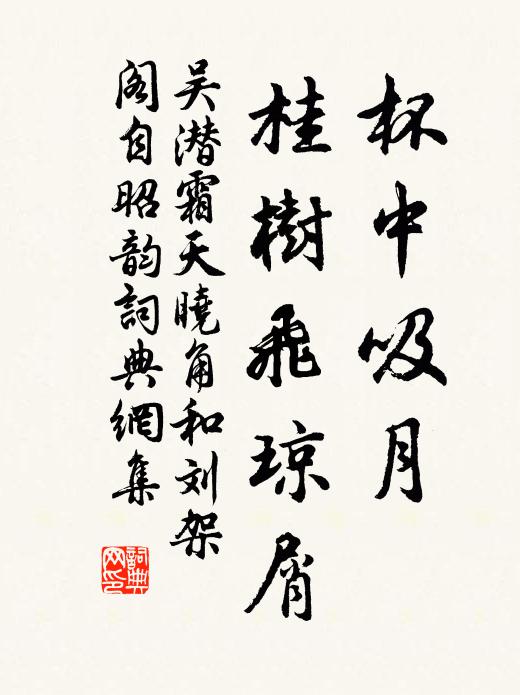 杯中吸月
桂樹飛琼屑
吴潜霜天曉角和刘架
阁自昭韵詞典網集
詞典网印